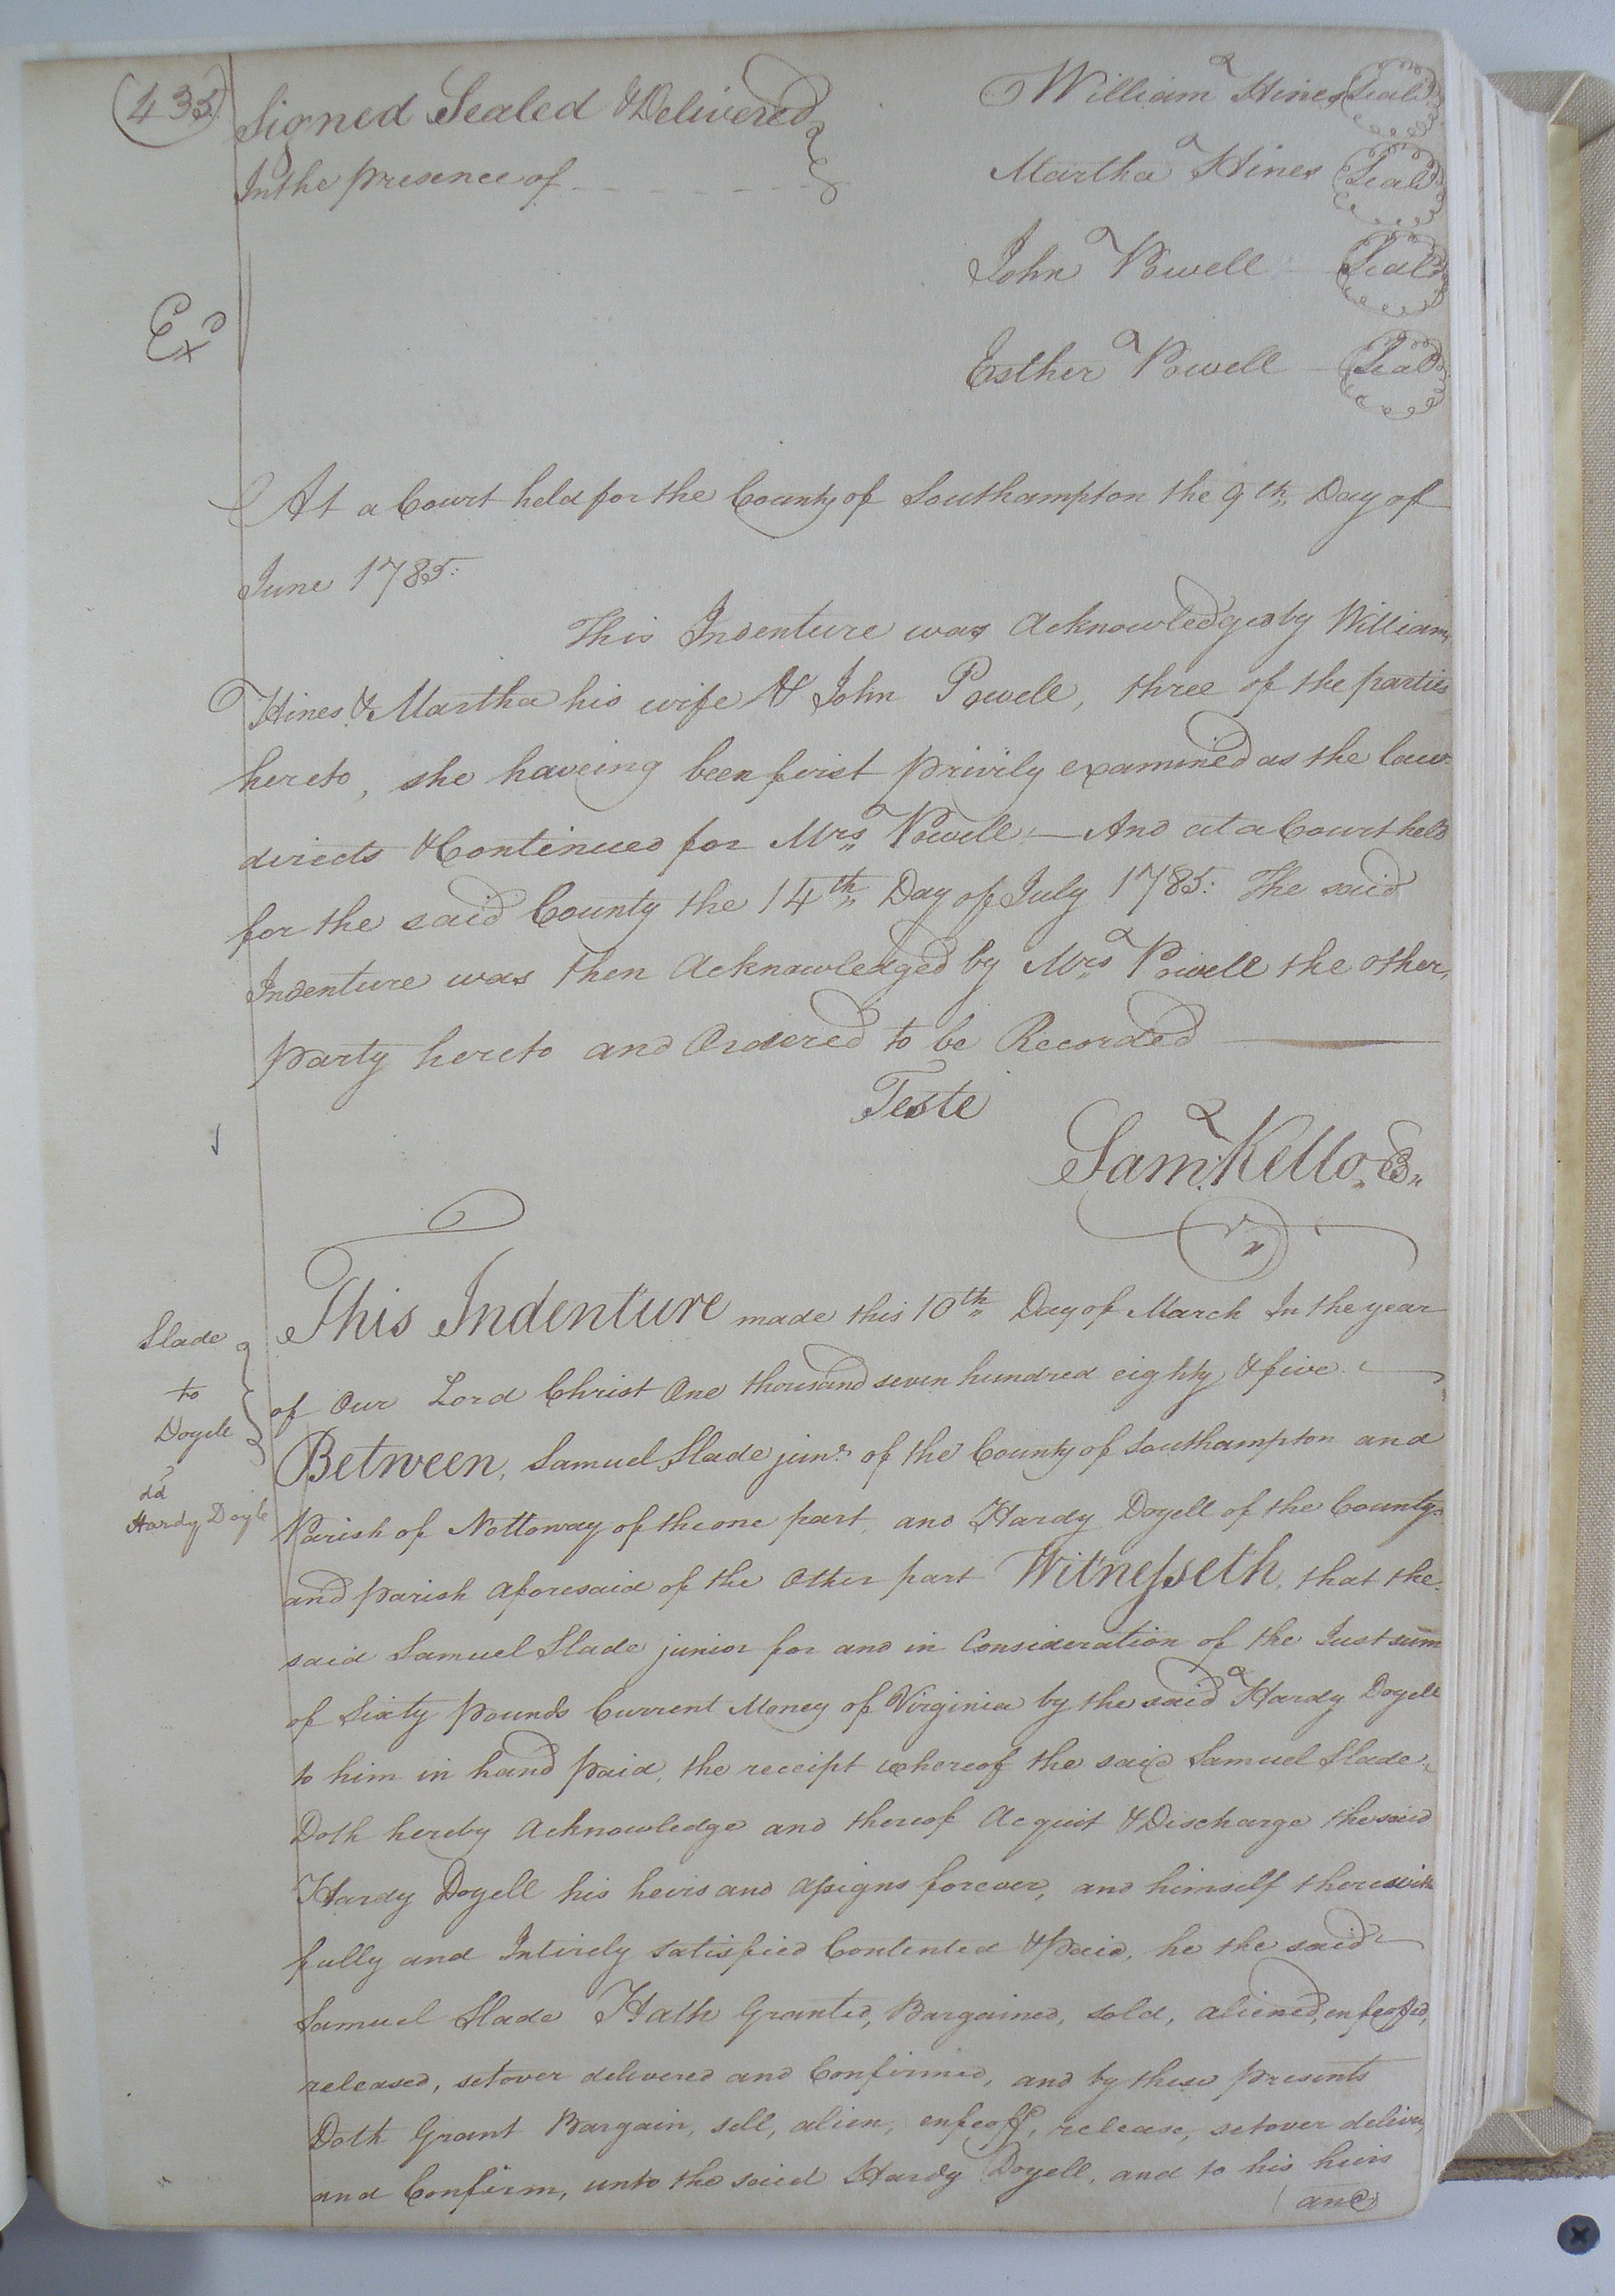 (435)
Signed Sealed & Delivered
In the presence of
William Hines Seal
Martha Hines Seal
John Powell Seal
Esther Powell Seal
Exd
At a Court held for the County of Southampton the 9th Day of
June 1785.
This Indenture was Acknowledged by William
Hines & Martha his wife & John Powell, three of the parties
hereto, she haveing been first privily examined as the law
directs & Continued for Mrs Powell — And at a Court held
for the said County the 14th Day of July 1785: The said
Indenture was then Acknowledged by Mrs Powell the other,
party hereto and Ordered to be Recorded
Teste
Sam. Kello, C.
This Indenture made this 10th Day of March In the year
of Our Lord Christ One thousand seven hundred eighty & five
Slade
to
Doyell
dd
Hardy Doyle
Between, Samuel Slade junr. of the County of Southampton and
Parish of Nottoway of the one part, and Hardy Doyell of the County
and parish aforesaid of the Other part Witnesseth, that the
said Samuel Slade junior for and in Consideration of the Just sum
of Sixty Pounds Current Money of Virginia by the said Hardy Doyell
to him in hand paid, the receipt whereof the said Samuel Slade
Doth hereby Acknowledge and thereof Acquit & Discharge the said
Hardy Doyell his heirs and assigns forever, and himself therewith
fully and Intirely satisfied Contented & paid, he the said
Samuel Slade Hath Granted, Bargained, sold, aliened, enfeoffed,
released, setover delivered and Confirmed, and by these presents
Doth Grant Bargain, sell, alien, enfeoff, release, setover deliver,
and Confirm, unto the said Hardy Doyell, and to his heirs
(and